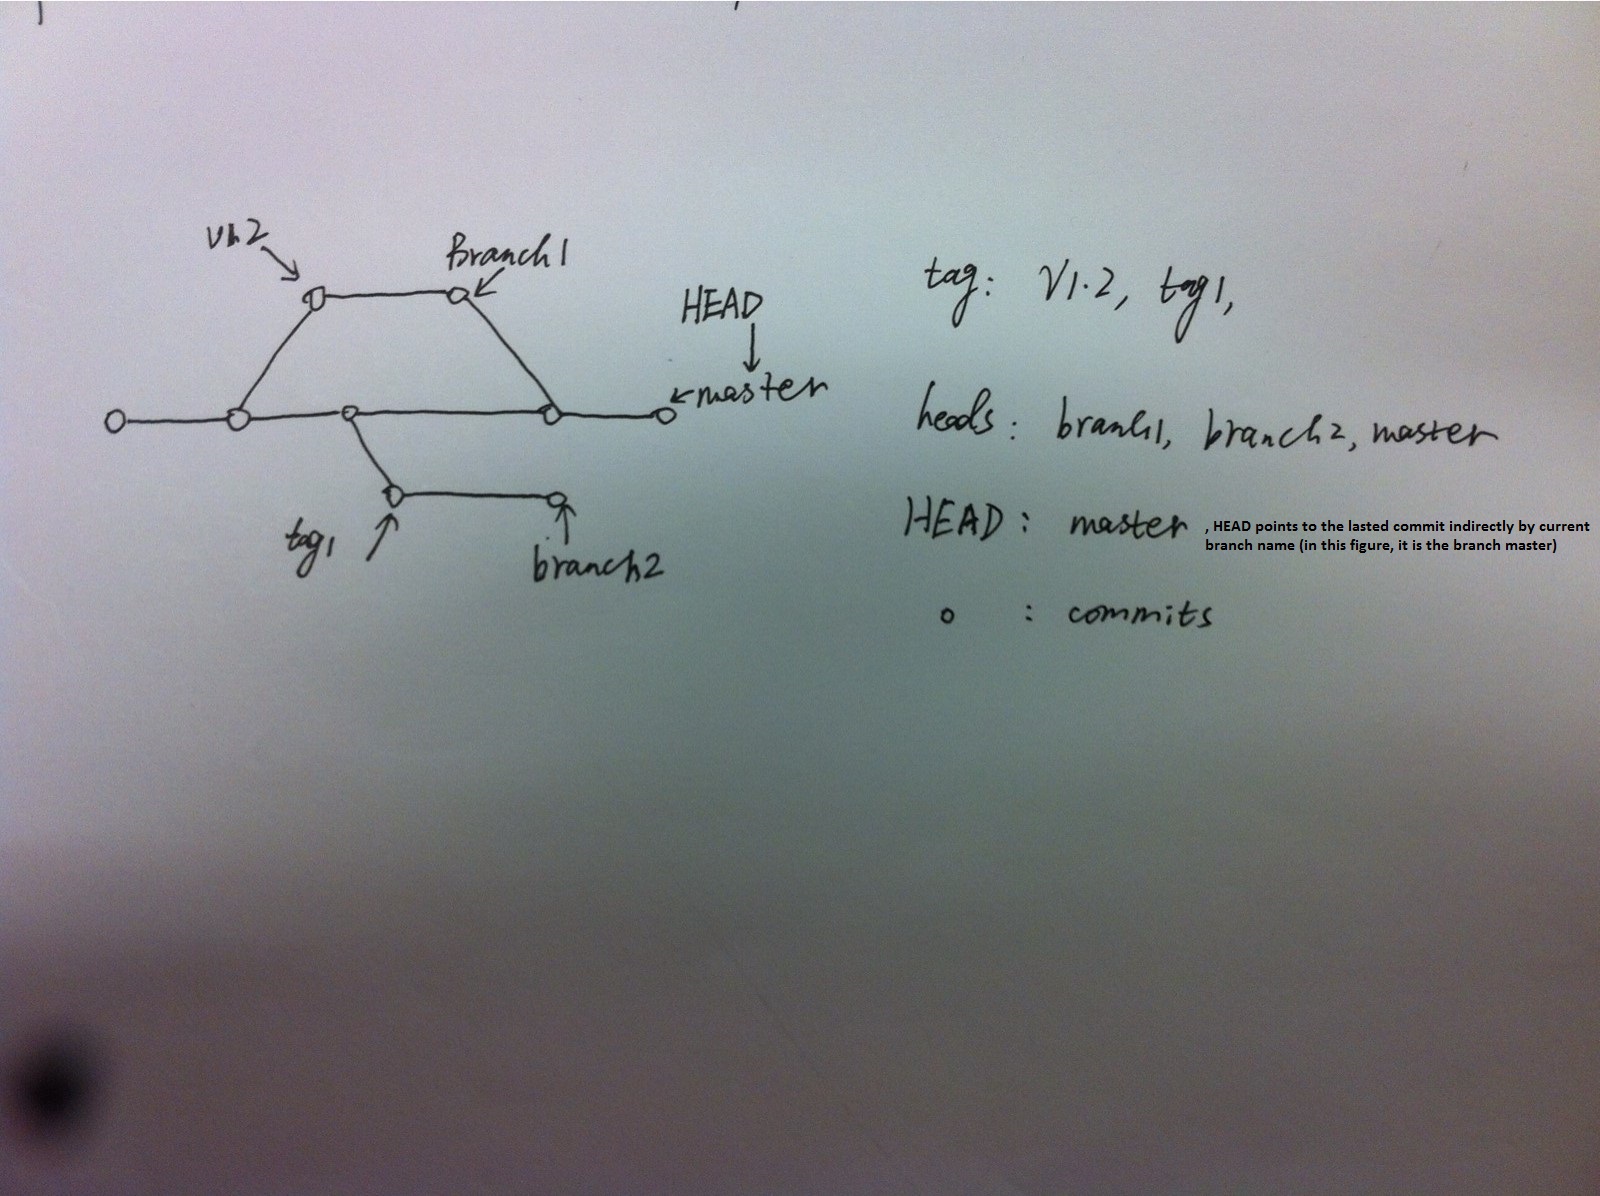 V1.2
Branch1
HEAD
master
tag1
branch2
tag: V1.2, tag1,
heads: branch1, branch2, master
HEAD: master , HEAD points to the lasted commit indirectly by current
branch name (in this figure, it is the branch master)
o : commits